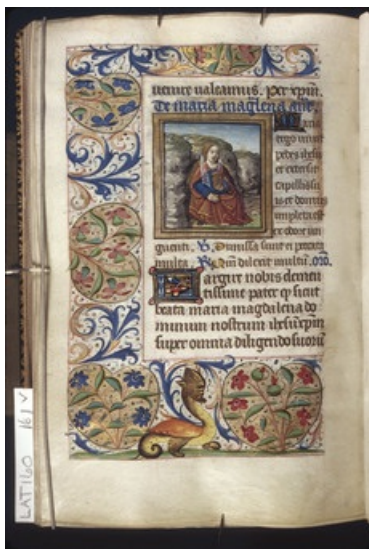 uenire ualeamus. Per xpm̄.
De maria magḹena añt.
Maria
ergo unxit
pedes ihesu
et extersit
capillis su
is et domus
impleta est
ex odore un
guenti. V. Dimissa sunt ei peccata
multa. R. Qm̄ dilexit multū. Oro.
Largire nobis clemen
tissime pater qȝ sicut
beata maria magdalena do
minum nostrum ihesū xpm̄
super omnia diligendo suorū
LAT 160 161 V